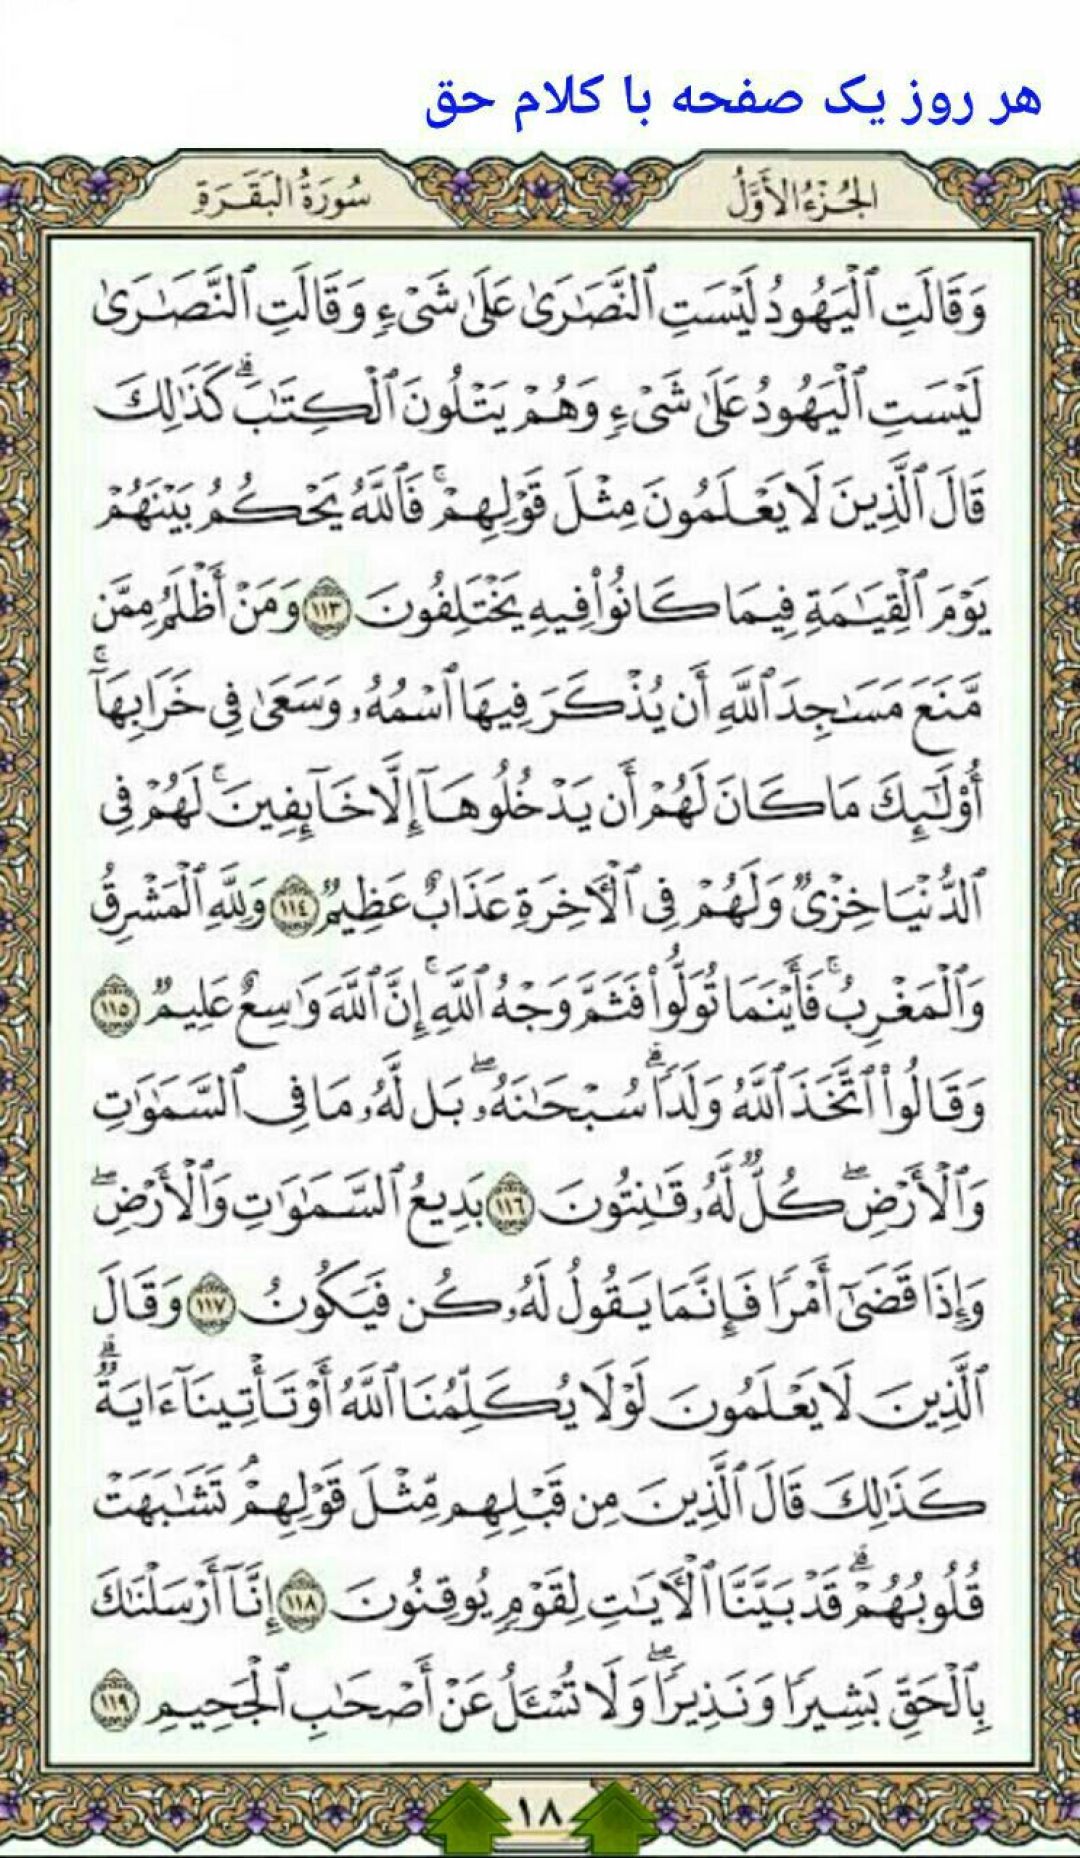 هر روز یک صفحه با کلام حق
الجُزْءُ الأَوَّلُ
سُورَةُ البَقَرَةِ
وَقَالَتِ ٱلْيَهُودُ لَيْسَتِ ٱلنَّصَٰرَىٰ عَلَىٰ شَىْءٍ وَقَالَتِ ٱلنَّصَٰرَىٰ
لَيْسَتِ ٱلْيَهُودُ عَلَىٰ شَىْءٍ وَهُمْ يَتْلُونَ ٱلْكِتَٰبَ ۗ كَذَٰلِكَ
قَالَ ٱلَّذِينَ لَا يَعْلَمُونَ مِثْلَ قَوْلِهِمْ ۚ فَٱللَّهُ يَحْكُمُ بَيْنَهُمْ
يَوْمَ ٱلْقِيَٰمَةِ فِيمَا كَانُوا۟ فِيهِ يَخْتَلِفُونَ ١١٣ وَمَنْ أَظْلَمُ مِمَّن
مَّنَعَ مَسَٰجِدَ ٱللَّهِ أَن يُذْكَرَ فِيهَا ٱسْمُهُۥ وَسَعَىٰ فِى خَرَابِهَآ ۚ
أُو۟لَٰٓئِكَ مَا كَانَ لَهُمْ أَن يَدْخُلُوهَآ إِلَّا خَآئِفِينَ ۚ لَهُمْ فِى
ٱلدُّنْيَا خِزْىٌ وَلَهُمْ فِى ٱلْءَاخِرَةِ عَذَابٌ عَظِيمٌ ١١٤ وَلِلَّهِ ٱلْمَشْرِقُ
وَٱلْمَغْرِبُ ۚ فَأَيْنَمَا تُوَلُّوا۟ فَثَمَّ وَجْهُ ٱللَّهِ ۚ إِنَّ ٱللَّهَ وَٰسِعٌ عَلِيمٌ ١١٥
وَقَالُوا۟ ٱتَّخَذَ ٱللَّهُ وَلَدًا ۗ سُبْحَٰنَهُۥ ۖ بَل لَّهُۥ مَا فِى ٱلسَّمَٰوَٰتِ
وَٱلْأَرْضِ ۖ كُلٌّ لَّهُۥ قَٰنِتُونَ ١١٦ بَدِيعُ ٱلسَّمَٰوَٰتِ وَٱلْأَرْضِ ۖ
وَإِذَا قَضَىٰٓ أَمْرًا فَإِنَّمَا يَقُولُ لَهُۥ كُن فَيَكُونُ ١١٧ وَقَالَ
ٱلَّذِينَ لَا يَعْلَمُونَ لَوْلَا يُكَلِّمُنَا ٱللَّهُ أَوْ تَأْتِينَآ ءَايَةٌ ۗ
كَذَٰلِكَ قَالَ ٱلَّذِينَ مِن قَبْلِهِم مِّثْلَ قَوْلِهِمْ ۘ تَشَٰبَهَتْ
قُلُوبُهُمْ ۗ قَدْ بَيَّنَّا ٱلْءَايَٰتِ لِقَوْمٍ يُوقِنُونَ ١١٨ إِنَّآ أَرْسَلْنَٰكَ
بِٱلْحَقِّ بَشِيرًا وَنَذِيرًا ۖ وَلَا تُسْـَٔلُ عَنْ أَصْحَٰبِ ٱلْجَحِيمِ ١١٩
١٨